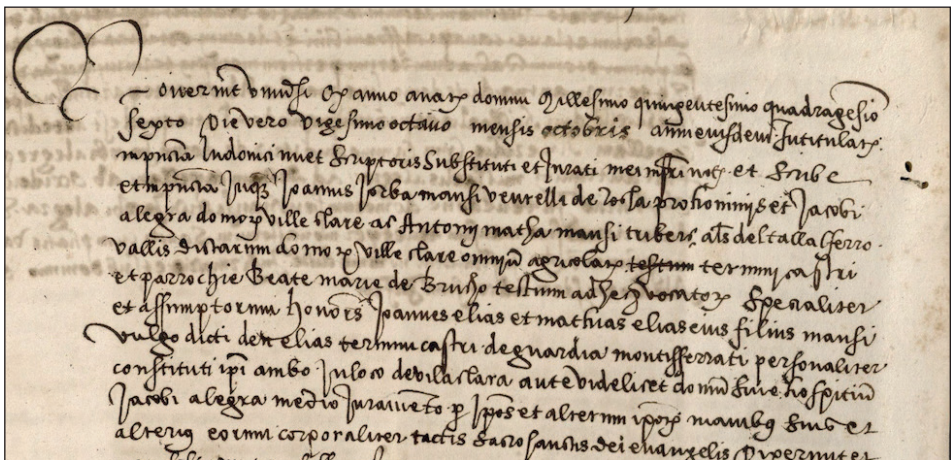 Noverint universi q anno a nat domini Millesimo quingentesimo quadragesimo
sexto die vero vigesimo octavo mensis octobris anni eiusdem Intitulat
in pntia ludovici scriptoris substituti et Jurati mei Infri not et scribe
et in pntia Joannis Jorba mansi de rocha et Jacobi
alegra domor ville clare ac Antonij matha mansi als del talla
vallis dictarum domor ville clare omniu agricolar testium termini castri
et parrochie Beate marie de Brucho testium ad hec vocator specialiter
et assumptorum honors Joannes elias et mathias elias eius filius mansi
vulgo dicti den elias termini castri de guardia montisferrati personaliter
constituti ipi ambo In loco de vilaclara ante videlicet domu sive hospitiu
Jacobi alegra medio Juramento p Ipos et alterum ipor manibus suis et
alterius eorum corporaliter tactis sacrosanctis dei evangelis dixerunt et